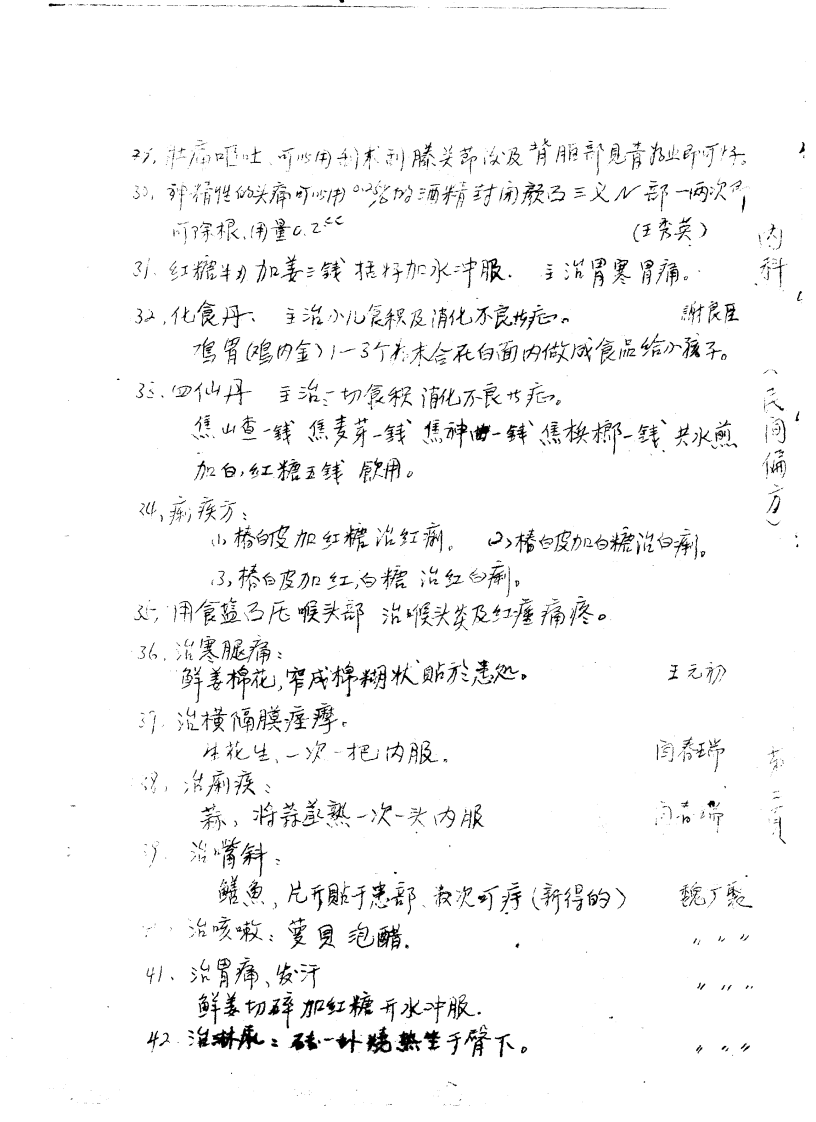 29, 肚痛呕吐、可以用刮术刮膝关节后及背胆部见青即可好。
30, 神精性的头痛可以用0.25%的酒精封闭颜面三叉N部一两次即
可除根、用量0.2cc
(王秀英)
31、红糖半加姜三錢 加水冲服. 主治胃寒胃痛。
32, 化食丹、 主治小儿食积及消化不良等症。 謝良臣
鸡胃(鸡内金)1-3个为末合在白面内做成食品给小孩子。
33. 四仙丹 主治一切食积消化不良等症。
焦山查一錢 焦麦芽一錢 焦神曲一錢 焦槟榔一錢 共水煎
加白,红糖五錢 飲用。
34, 痢疾方:
(1)椿白皮加红糖治红痢。 (2)椿白皮加白糖治白痢。
(3)椿白皮加红,白糖 治红白痢。
35, 用食盐 压喉头部 治喉头炎及红痛疼。
36. 治寒腿痛:
鲜姜棉花,窄成棉糊状 貼於患处。 王元初
37. 治横隔膜痙攣。
生花生、一次一把内服。 闫春瑞
38, 治痢疾:
蒜, 将蒜蒸熟一次一头内服 闫春瑞
39. 治嘴斜:
鱔魚, 片开貼于患部、数次可痊(新得的) 魏丁
治咳嗽: 蒌貝 泡醋. 〃 〃 〃
41、治胃痛、发汗 〃 〃 〃
鲜姜切碎加红糖开水冲服.
42. 治淋: 砖一块烧热坐于臀下。 〃 〃 〃
内科
(民间偏方)
第二頁